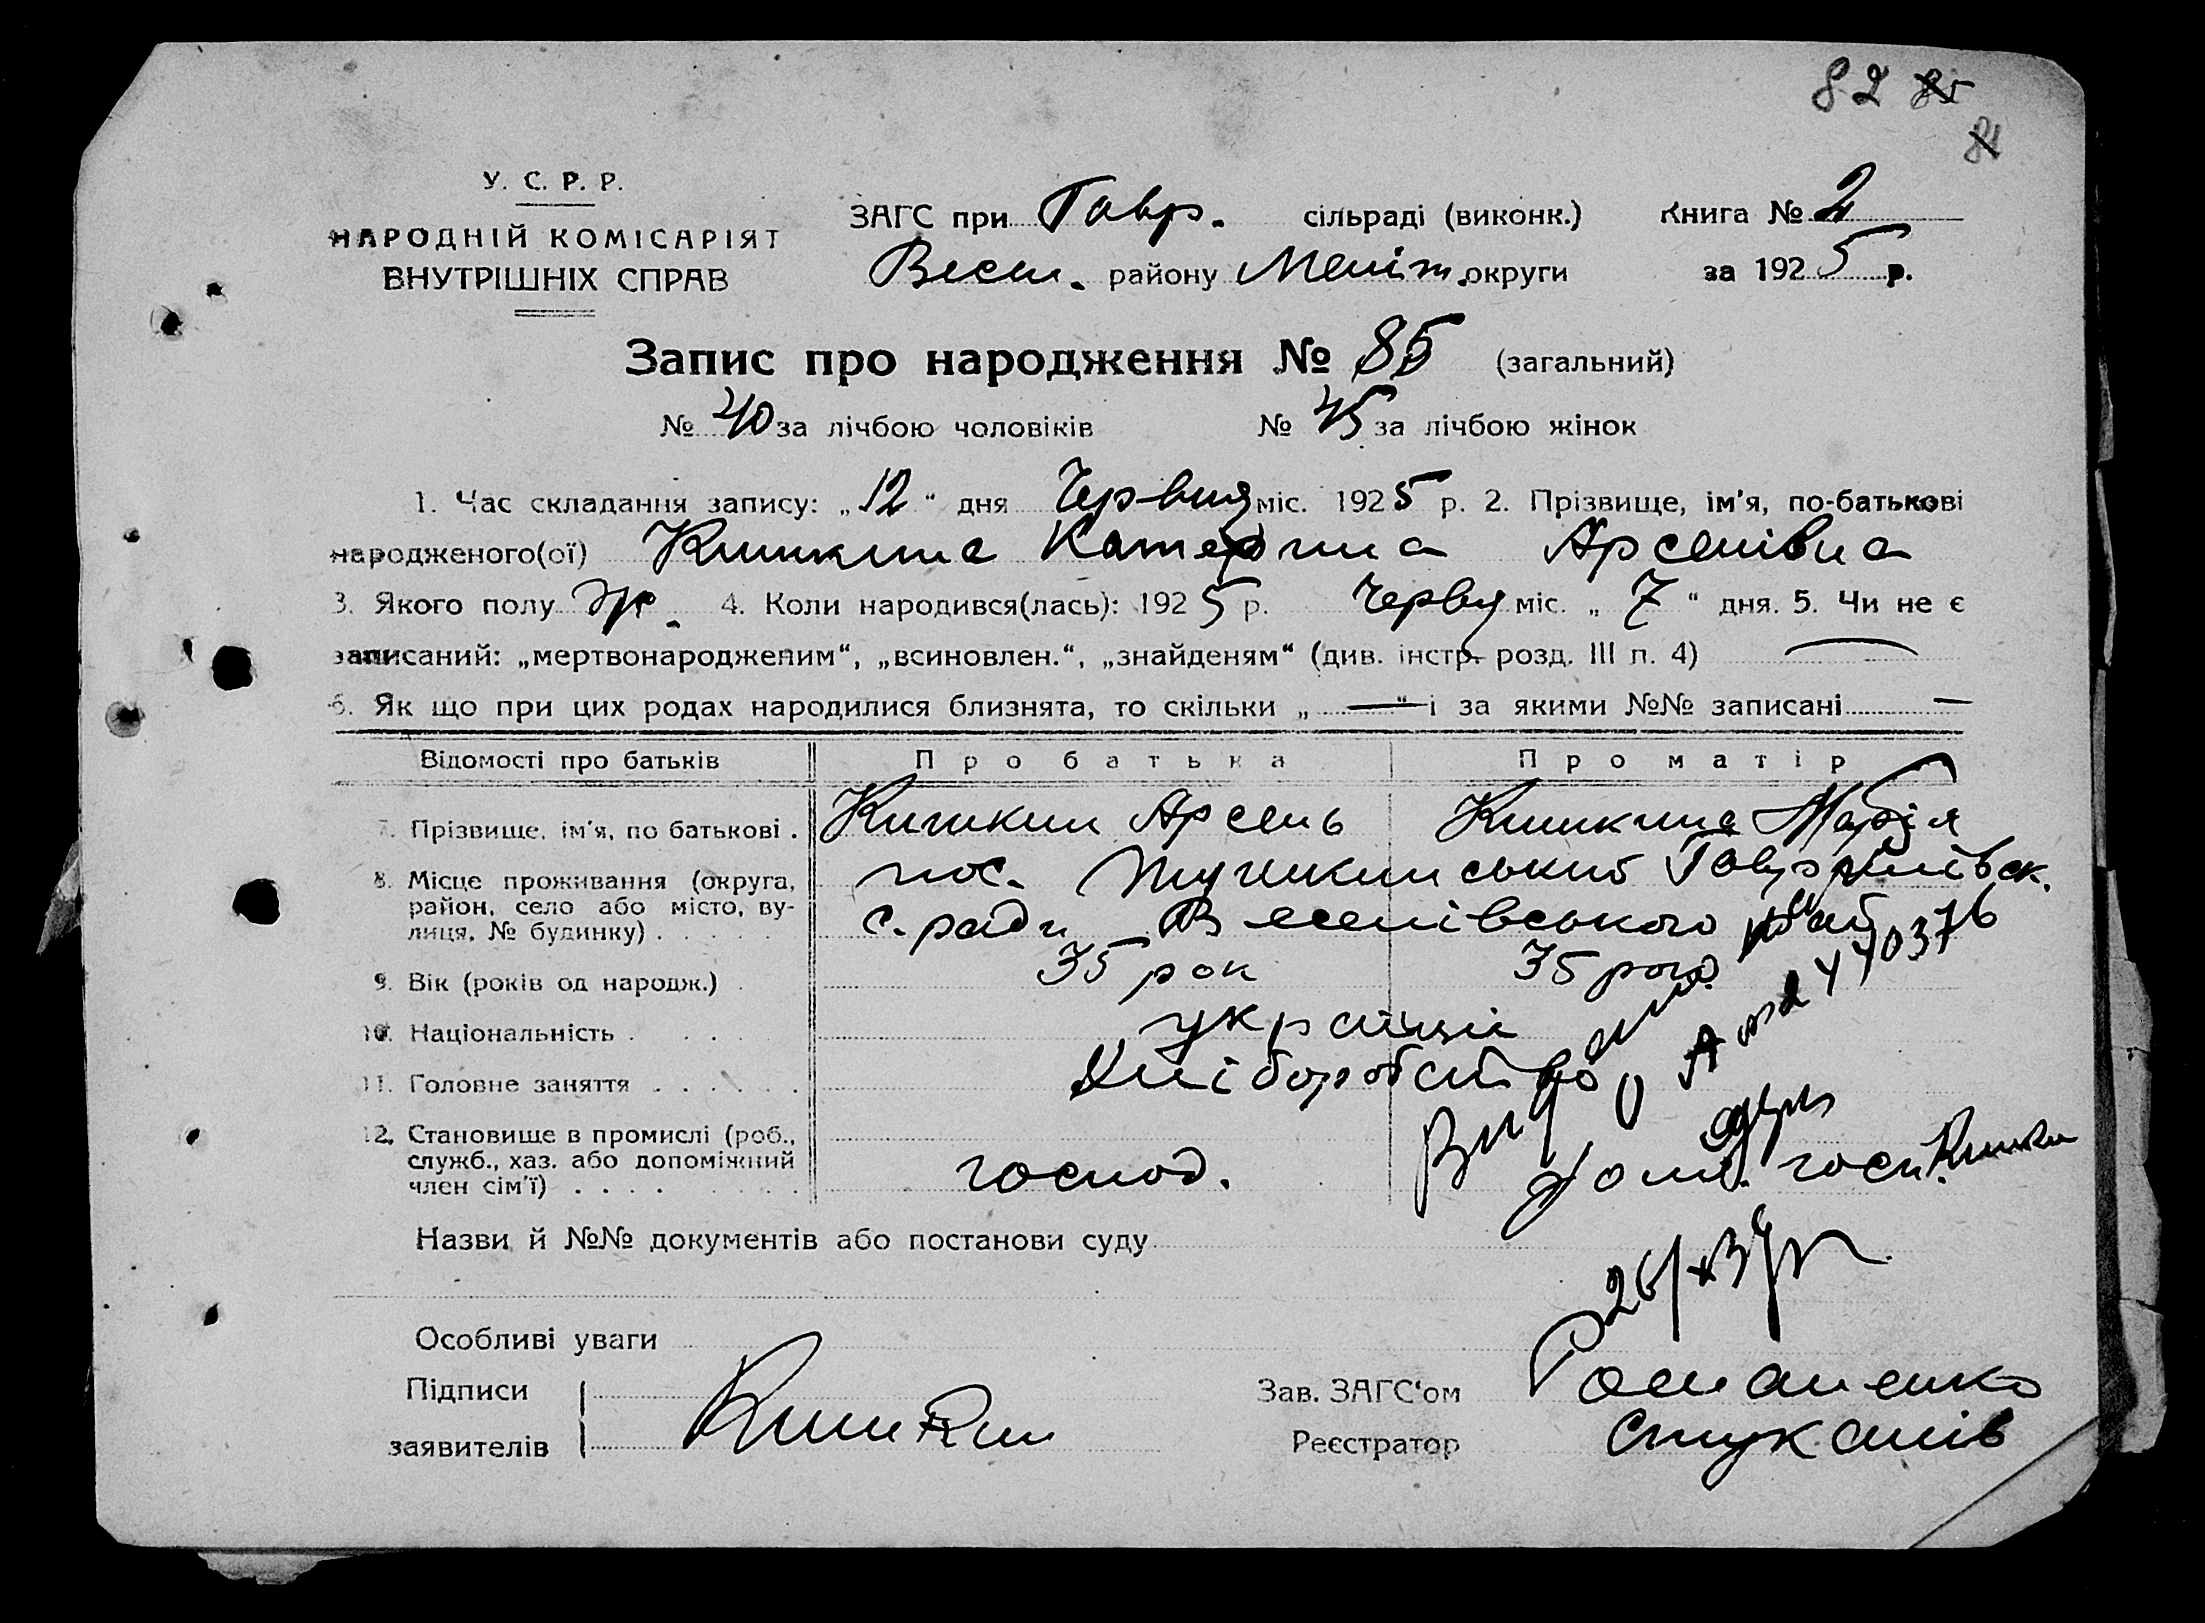 82 85
81
У. С. Р. Р.
НАРОДНІЙ КОМІСАРІЯТ
ВНУТРІШНІХ СПРАВ
ЗАГС при Гавр. сільраді (виконк.) Книга № 2
Весел. району Меліт. округи за 1925 р.
Запис про народження № 85 (загальний)
№ 40 за лічбою чоловіків № 45 за лічбою жінок
1. Час складання запису: „12“ дня Червня міс. 1925 р. 2. Прізвище, ім'я, по-батькові
народженого(ої) Кишкина Катерина Арсенівна
3. Якого полу ж. 4. Коли народився(лась): 1925 р. Червня міс. „7“ дня. 5. Чи не є
записаний: „мертвонародженим“, „всиновлен.“, „знайденям“ (див. інстр. розд. III п. 4) —
6. Як що при цих родах народилися близнята, то скільки „—“ і за якими №№ записані —
Відомості про батьків Про батька Про матір
7. Прізвище, ім'я, по батькові . Кишкин Арсень Кишкина Марія
8. Місце проживання (округа, район, село або місто, вулиця, № будинку) . . . . . пос. Гаврилівск.
с. ради Веселівського
9. Вік (років од народж.) . 35 рок 35 рок
10. Національність . . . . українці
11. Головне заняття . . . . . . Хліборобство
12. Становище в промислі (роб., служб., хаз. або допоміжний член сім'ї) . . . . . . господ. госп.
Назви й №№ документів або постанови суду
Особливі уваги
Підписи
заявителів Кишкин
Зав. ЗАГС'ом Романенко
Реєстратор Стуканів